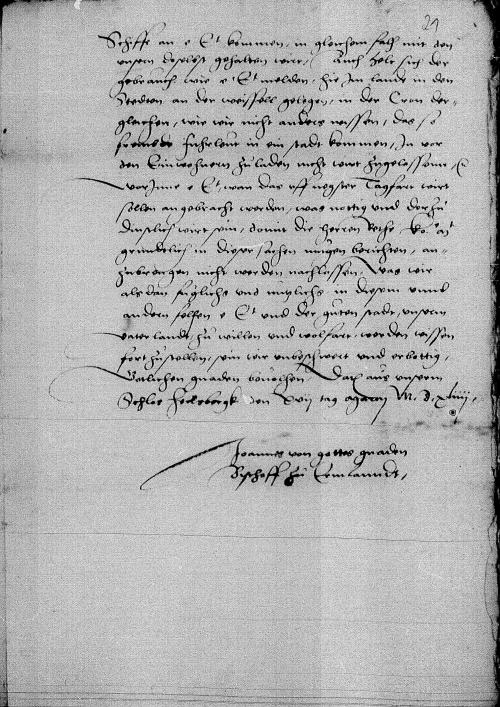 29
Schiffe an e Et kommen, in gleichem fall mit den
unsern doselbst gehalten wirt, Auch helt sich der
gebrauch wie e Et melden, hie Im lande in den
Stedten an der weissell gelegen, in der Cron der-
gleichen, wie wir nicht anders wissen, das so
frembde fuhrleut in ein stadt kommen, In vor
den Einwohnern zu laden nicht wirt zugelossenn,
Worinne e Et wan das uff negster Tagfart wirt
sollen angebracht werden, was nottig und dorzu
dinstlich wirt sein, domit die herren Rethe ko mt
grundtlich in dieser sachen mugen berichten, an-
zubrengen nicht werden nachlassen, Was wir
als dan fuglichs und nutzlichs in diesem unnd
andern fellen e Et und der guten stadt, unserm
vaterlandt, zu willen und wolfart, werden wissen
fortzustellen, sein wir unbeschwert und erbottig,
Gotlichen gnaden bevolhen, Dat aus unserm
Schlos den xvij tag M. D. xliiij,
Joannes von gottes gnaden
Bischoff zu Ermlanndt,